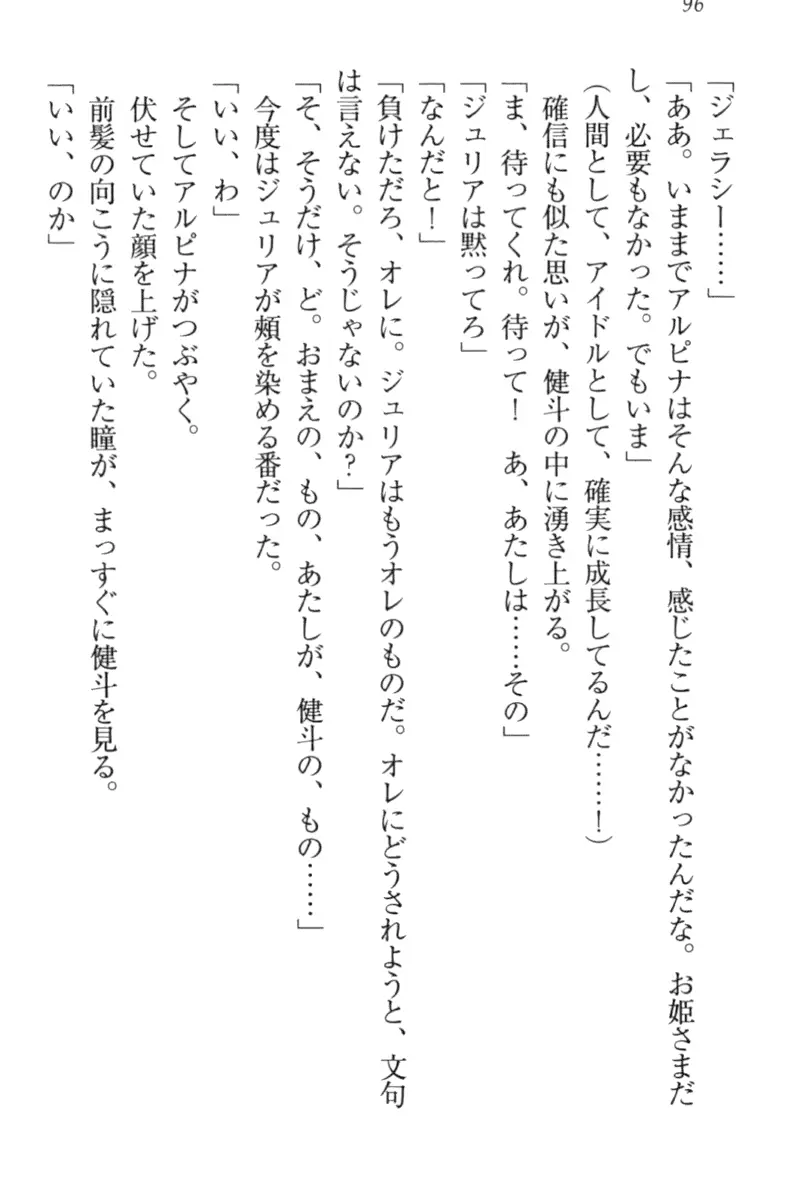 96
「ジェラシー……」
「ああ。いままでアルピナはそんな感情、感じたことがなかったんだな。お姫さまだ
し、必要もなかった。でもいま」
(人間として、アイドルとして、確実に成長してるんだ……！)
確信にも似た思いが、健斗の中に湧き上がる。
「ま、待ってくれ。待って！　あ、あたしは……その」
「ジュリアは黙ってろ」
「なんだと！」
「負けただろ、オレに。ジュリアはもうオレのものだ。オレにどうされようと、文句
は言えない。そうじゃないのか？」
「そ、そうだけ、ど。おまえの、もの、あたしが、健斗の、もの……」
今度はジュリアが頰を染める番だった。
「いい、わ」
そしてアルピナがつぶやく。
伏せていた顔を上げた。
前髪の向こうに隠れていた瞳が、まっすぐに健斗を見る。
「いい、のか」